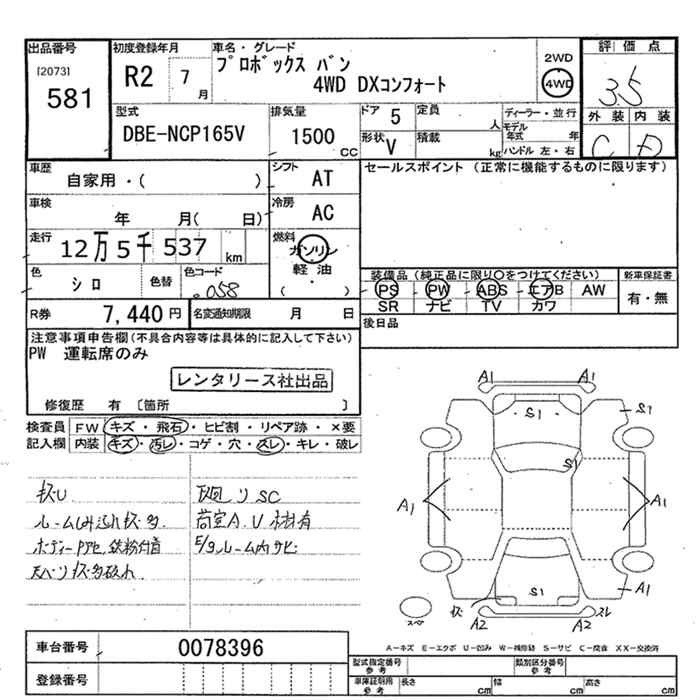 出品番号
[2073]
581
初度登録年月
R2 7 月
車名・グレード
プロボックス バン
4WD DXコンフォート
2WD
4WD
評価点
3.5
外装 内装
C D
型式
DBE-NCP165V
排気量
1500 CC
ドア 5
形状 V
定員 人
積載 kg
ディーラー・並行
モデル年式 年
ハンドル 左・右
車歴
自家用・( )
シフト
AT
セールスポイント (正常に機能するものに限ります)
車検
年 月( 日)
冷房
AC
走行
12万5千537 km
燃料
ガソリン
軽油
( )
色
シロ
色替
色コード
058
装備品 (純正品に限り○をつけてください)
PS PW ABS エアB AW
SR ナビ TV カワ
新車保証書
有・無
R券 7,440円
名変通知期限 月 日
後日品
注意事項申告欄(不具合内容等は具体的に記入して下さい)
PW 運転席のみ
レンタリース社出品
修復歴 有 〔箇所 〕
検査員記入欄
FW キズ・飛石・ヒビ割・リペア跡・×要
内装 キズ・汚レ・コゲ・穴・スレ・キレ・破レ
キズU
ルームしみ込れキズ多
ボディーPアセ鉄粉付着
凹 リ SC
荷室A.U 木材有
E/gルーム内サビ
A1 A1
S1 S1
S1
A1 A1
S1 A1
キズ スレ
A2 A2
スペア
A-キズ E-エクボ U-凹み W-補修跡 S-サビ C-腐食 XX-交換済
車台番号 0078396
登録番号
型式指定番号
参考
類別区分番号
参考
車庫証明用
参考
長さ cm 幅 cm 高さ cm